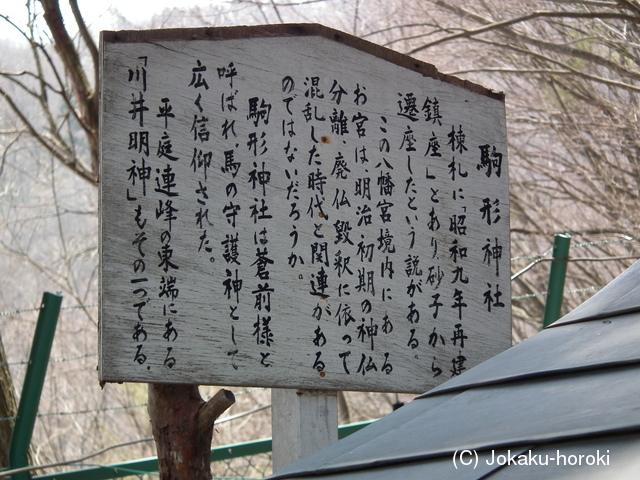 駒形神社
棟札に「昭和九年再建
鎮座」とあり、砂子から
遷座したという説がある。
この八幡宮境内にある
お宮は、明治初期の神仏
分離、廃仏毀釈に依って
混乱した時代と関連がある
のではないだろうか。
駒形神社は蒼前様と
呼ばれ馬の守護神として
広く信仰された。
平庭連峰の東端にある
「川井明神」もその一つである.
(C) Jokaku-horoki